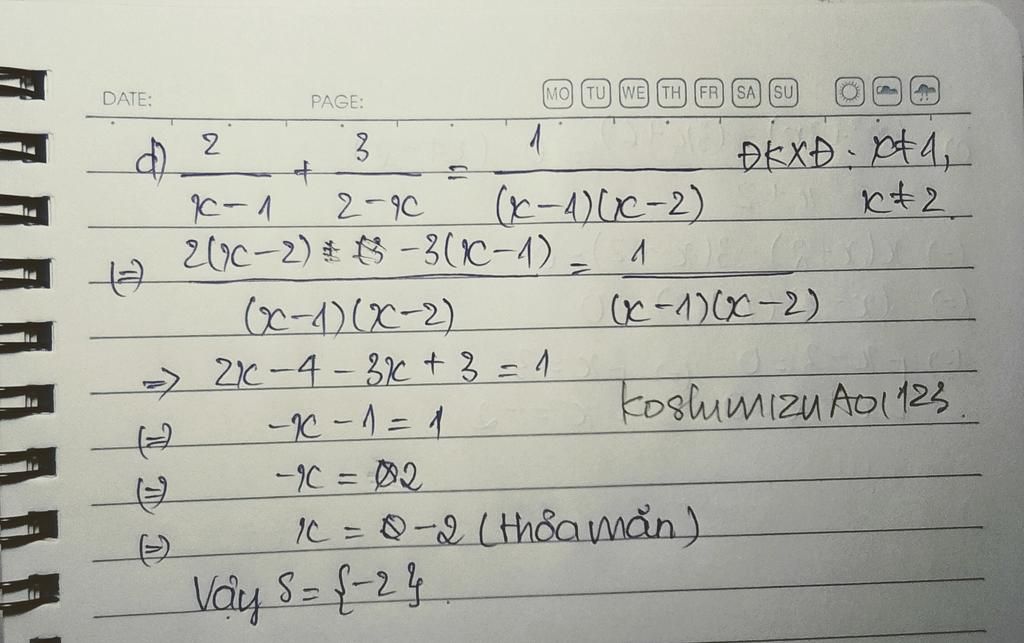 DATE: PAGE: MO TU WE TH FR SA SU
d) 2/(x-1) + 3/(2-x) = 1/((x-1)(x-2)) ĐKXĐ: x≠1,
x≠2
(=) (2(x-2) -3(x-1))/((x-1)(x-2)) = 1/((x-1)(x-2))
=> 2x-4-3x+3=1
(=) -x-1=1 KoshimizuAoi123.
(=) -x=2
(=) x=-2 (thỏa mãn)
Vậy S={-2}.